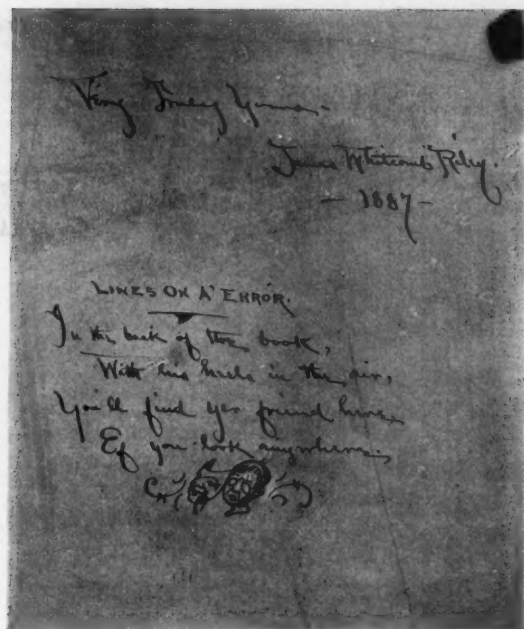 Very Truly Yours—
James Whitcomb Riley.
— 1887 —
LINES ON A' ERROR.
In the back of the book,
With his heels in the air,
You'll find yer friend here
Ef you look anywhere